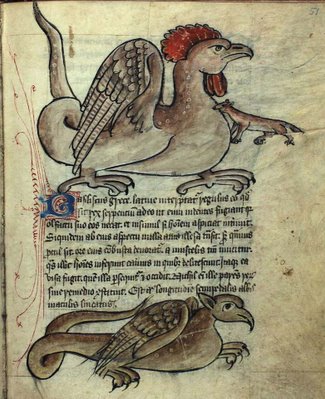 Basiliscus grece. latine interptat regulus eo qd
sit rex serpentium adeo ut eum videntes fugiant quia
olfactu suo eos necat. et hominem si aspiciat interimit
Siquidem ab eius aspectu nulla avis illesa transit. quamvis
procul sit eius ore combusta devorat. a mustelis tn vincitur
quas illic homines inferunt cavernis in quibus delitescunt itaque ea
visa fugit. quem illa persequit et occidit. Nichil enim ille parens
sine remedio constituit. Est autem longitudine semipedalis albis
maculis lineatus.